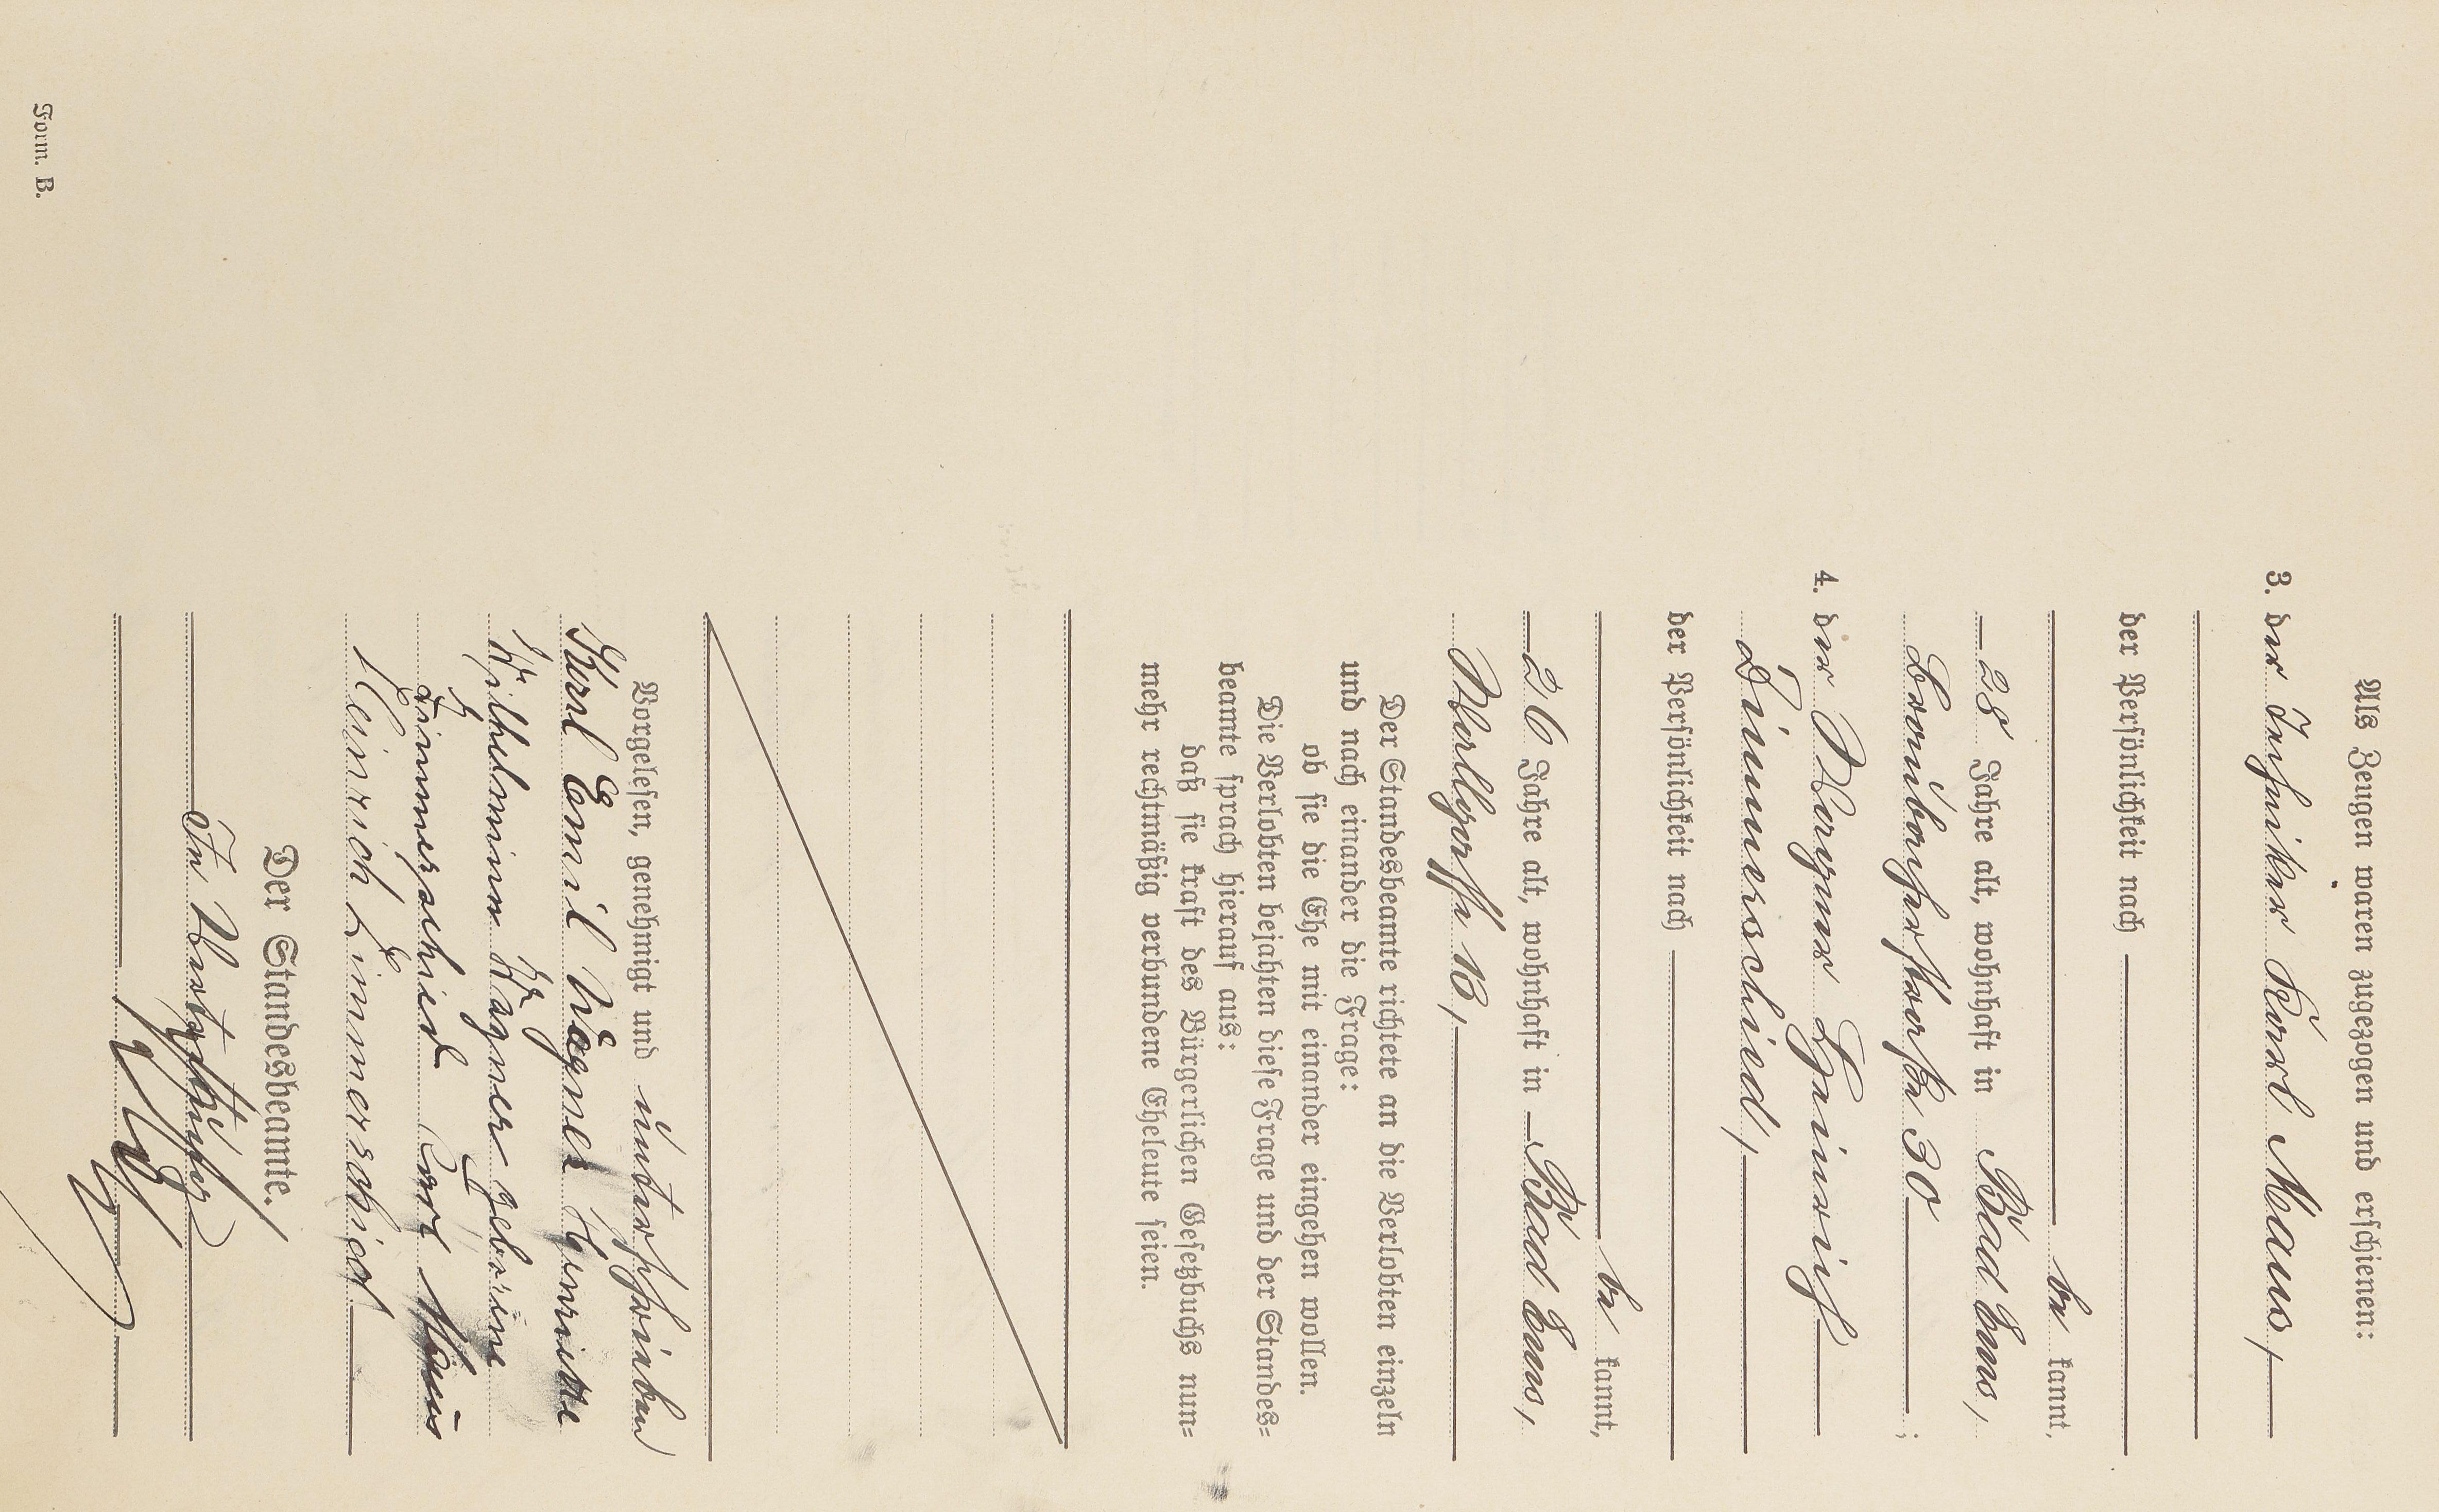 Als Zeugen waren zugezogen und erschienen:
3. der Techniker Karl Maus,
der Persönlichkeit nach
be kannt,
28 Jahre alt, wohnhaft in Bad Ems,
Braubacherstraße 30 ;
4. der Wagner Heinrich
Zimmerschied,
der Persönlichkeit nach
be kannt,
26 Jahre alt, wohnhaft in Bad Ems,
Wallgasse 16,
Der Standesbeamte richtete an die Verlobten einzeln
und nach einander die Frage:
ob sie die Ehe mit einander eingehen wollen.
Die Verlobten bejahten diese Frage und der Standes-
beamte sprach hierauf aus:
daß sie kraft des Bürgerlichen Gesetzbuchs nun-
mehr rechtmäßig verbundene Eheleute seien.
Vorgelesen, genehmigt und unterschrieben
Karl Emil Wagner Henriette
Wilhelmine Wagner geborene
Zimmerschied Carl Maus
Heinrich Zimmerschied
Der Standesbeamte.
In Vertretung
Form. B.